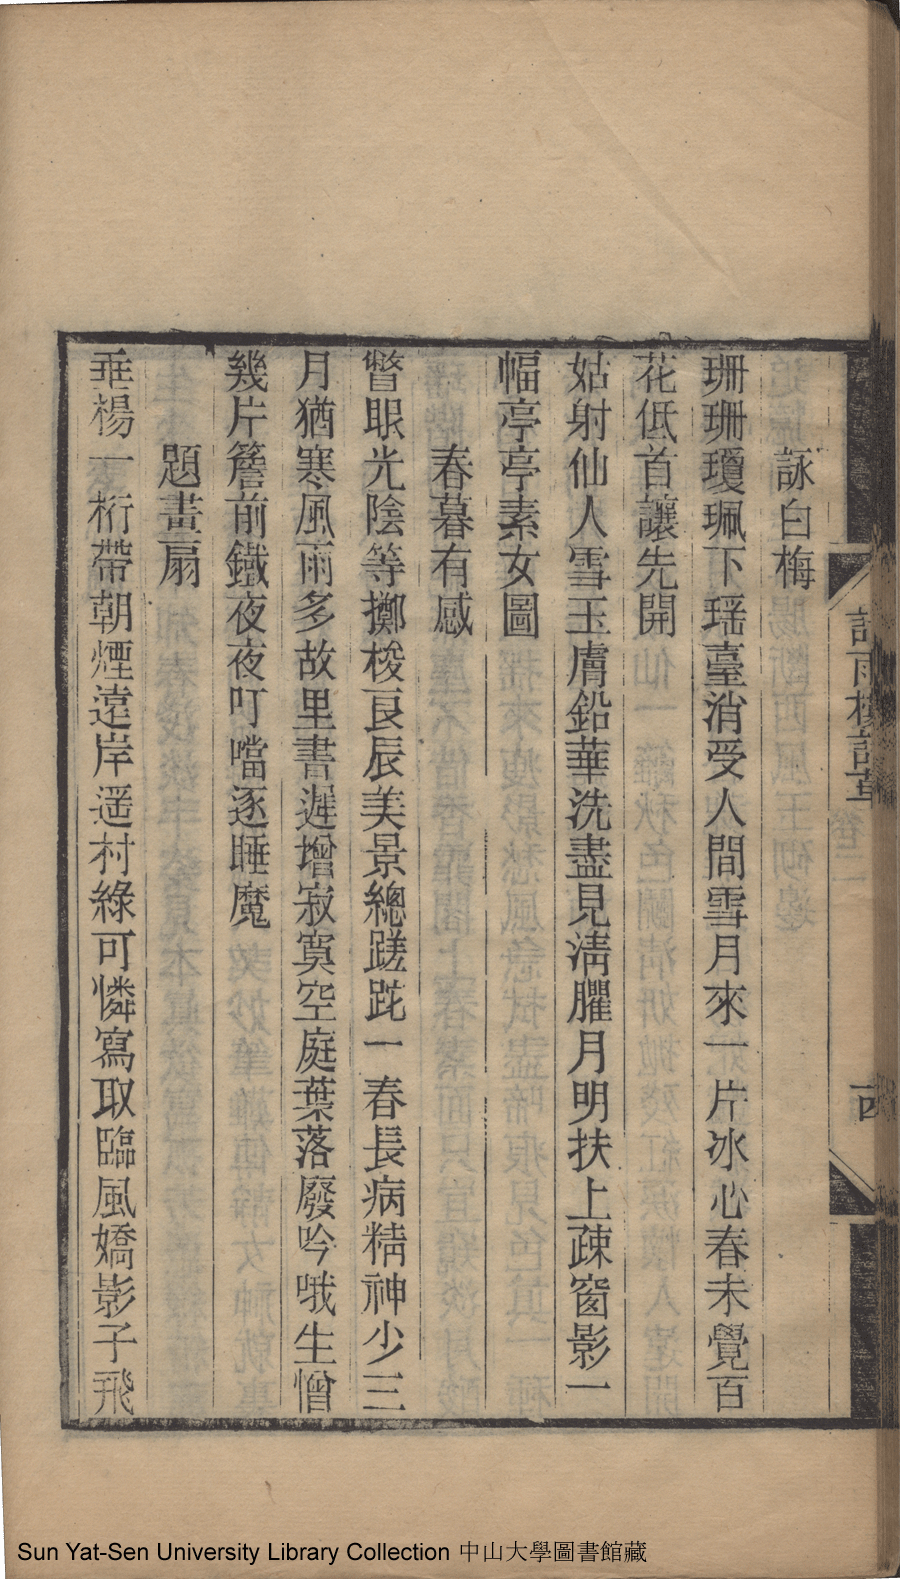 詠白梅
珊珊瓊珮下瑤臺消受人間雪月來一片冰心春未覺百
花低首讓先開
姑射仙人雪玉膚鉛華洗盡見淸臞月明扶上疎窗影一
幅亭亭素女圖
春暮有感
瞥眼光陰等擲梭良辰美景總蹉跎一春長病精神少三
月猶寒風雨多故里書遲增寂寞空庭葉落廢吟哦生憎
幾片簷前鐵夜夜叮噹逐睡魔
題畫扇
垂楊一桁帶朝煙遠岸遥村綠可憐寫取臨風嬌影子飛
Sun Yat-Sen University Library Collection 中山大學圖書館藏